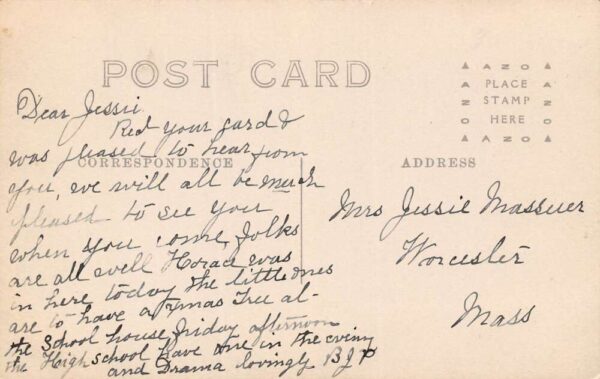 POST CARD
AZO
PLACE
STAMP
HERE
AZO
CORRESPONDENCE
ADDRESS
Dear Jessie
Red your card &
was pleased to hear from
you, we will all be much
pleased to see you
when you come, folks
are all well Horace was
in here today the little ones
are to have a Xmas Tree at
the School house friday afternoon
the High school have one in the evning
and Drama lovingly B J P
Mrs Jessie Massuer
Worcester
Mass